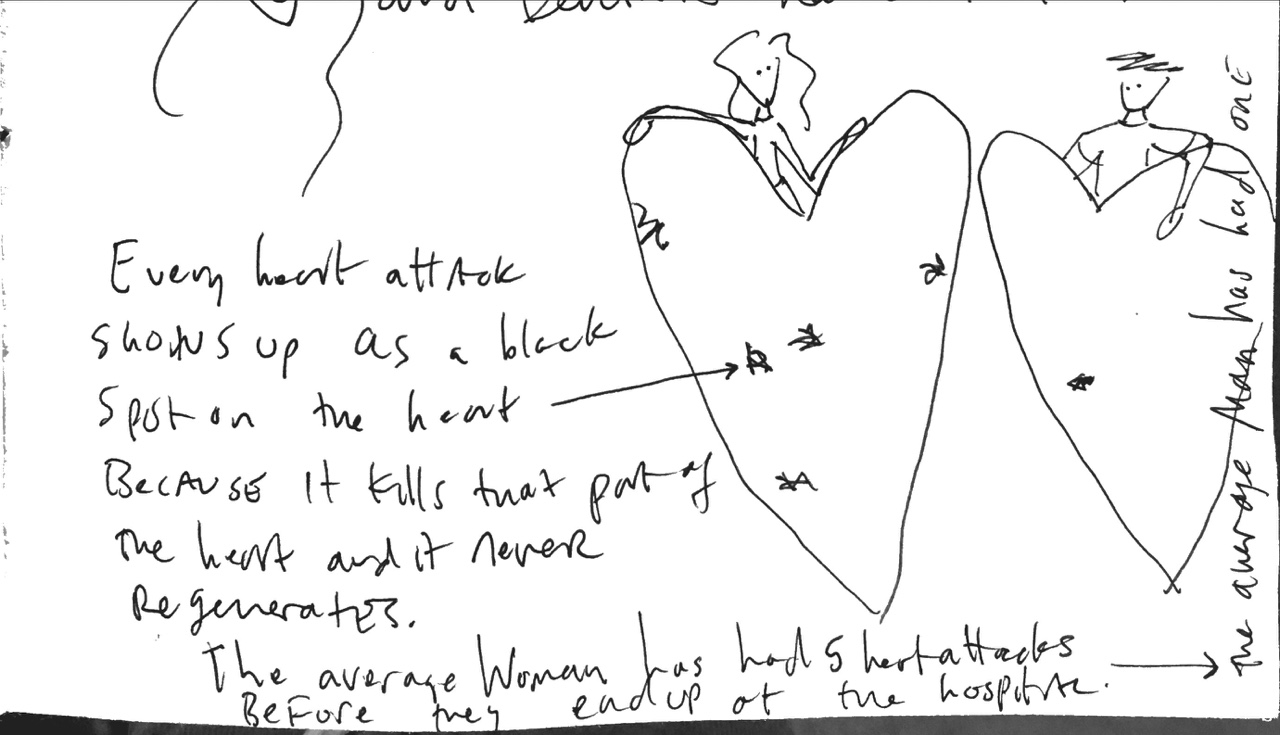 Every heart attack
shows up as a black
spot on the heart
Because it kills that part of
the heart and it never
Regenerates.
The average Woman has had 5 heart attacks
Before they end up at the hospital.
the average Man has had one